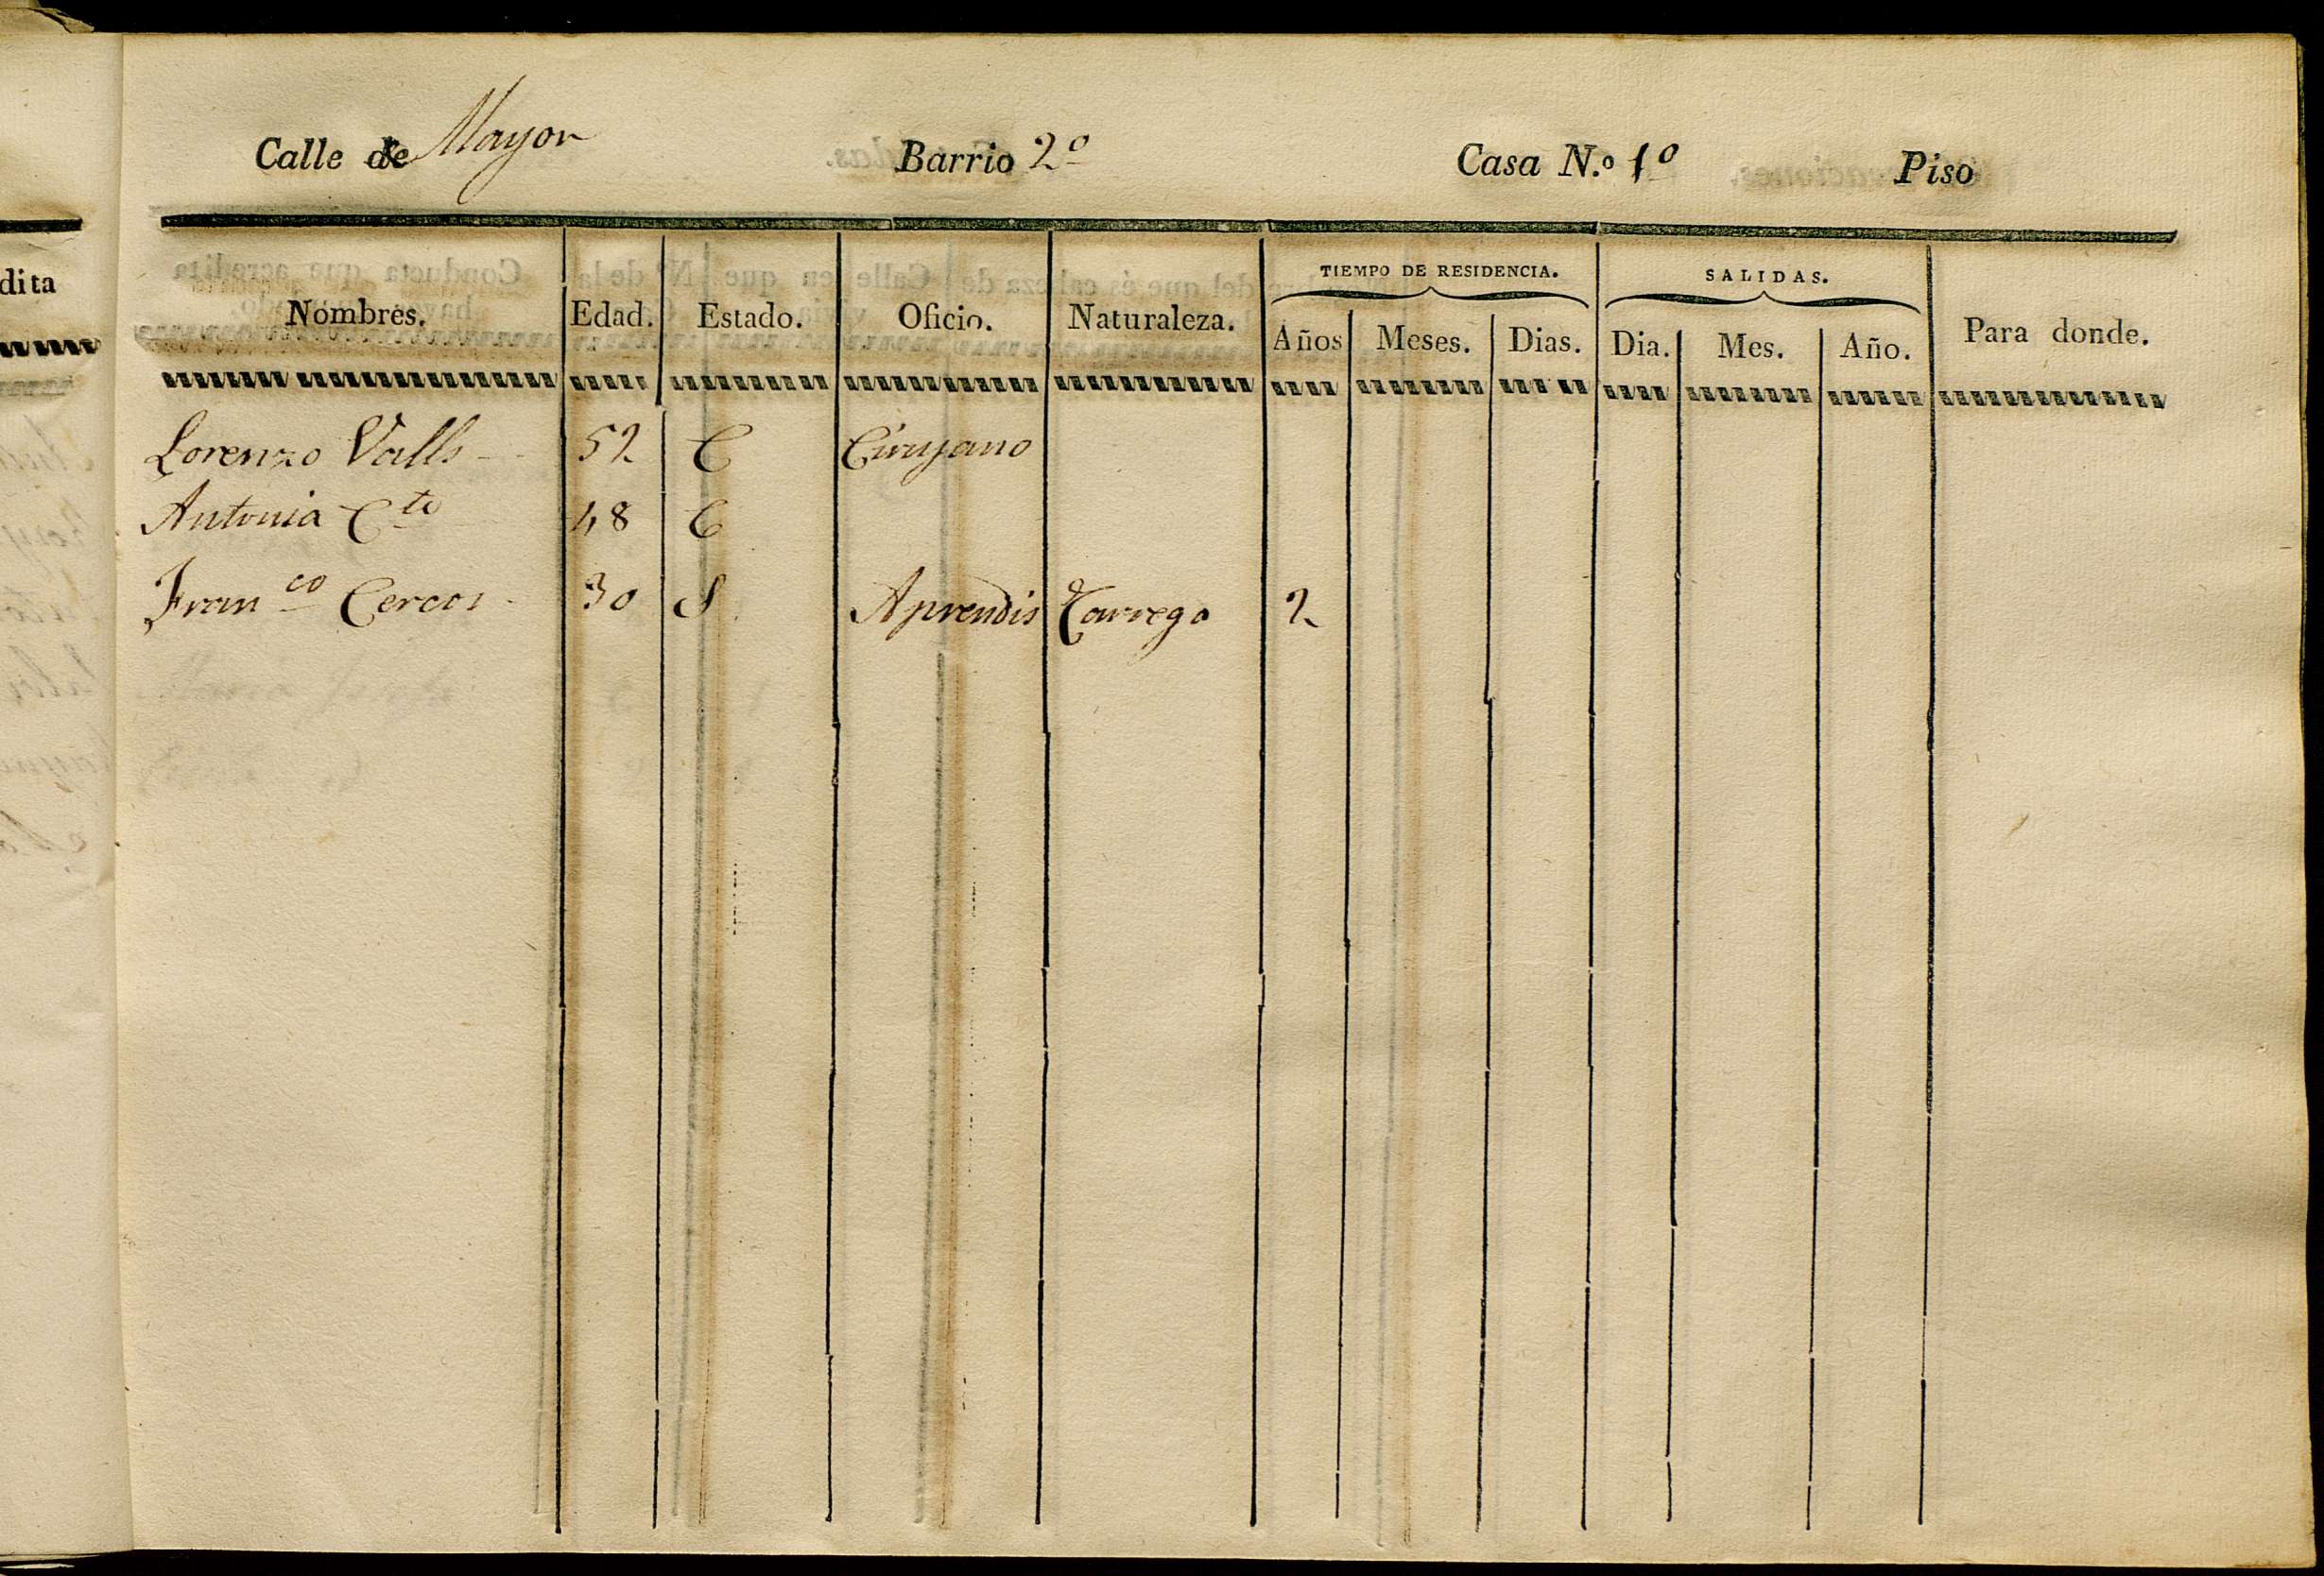 dita
Calle de Mayor Barrio 2º Casa N.º 1º Piso
TIEMPO DE RESIDENCIA. SALIDAS.
Nombres. Edad. Estado. Oficio. Naturaleza. Años Meses. Dias. Dia. Mes. Año. Para donde.
Lorenzo Valls 52 C Cirujano
Antonia Cte 48 C
Franco Cercos 30 S Aprendis Tarrega 2